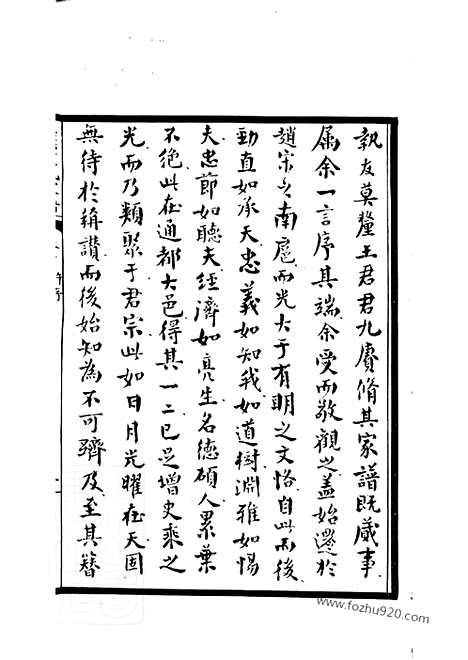 執友莫釐王君君九賡脩其家譜既蕆事
属余一言序其端余受而敬觀之蓋始遷於
趙宋之南扈而光大于有明之文恪自此而後
勁直如承天忠義如知我如道樹淵雅如惕
夫忠節如聽夫經濟如亮生名德碩人累葉
不絕此在通都大邑得其一二已足增史乘之
光而乃類聚于君宗此如日月光曜在天固
無待於稱讚而後始知為不可躋及至其簪
序
www.fozhu920.com